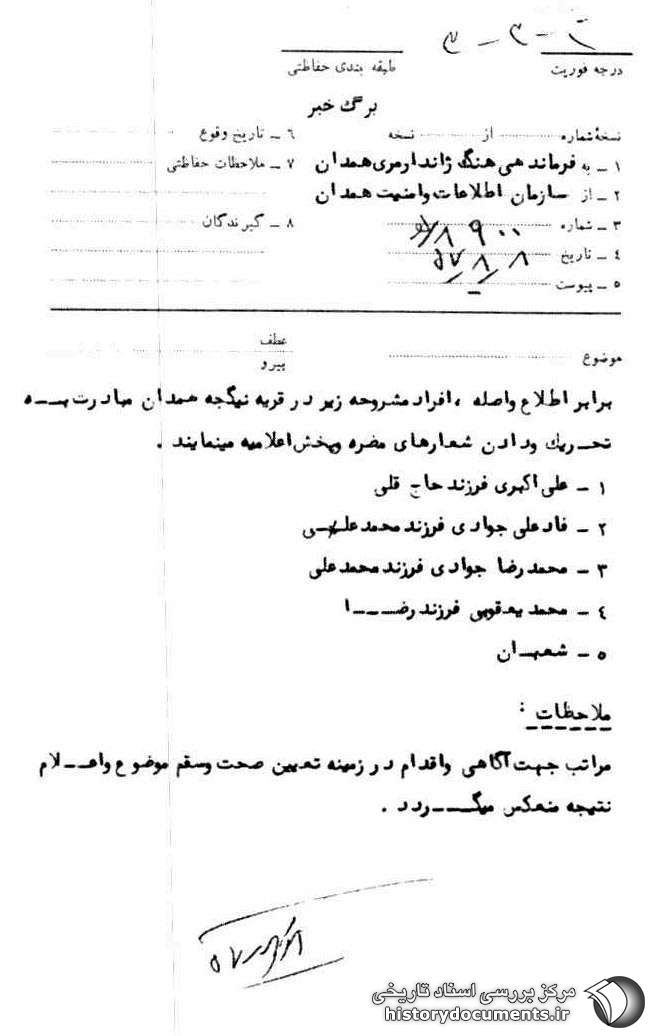 ۳ - ۳ - ۲
درجه فوریت
طبقه بندی حفاظتی
برگ خبر
نسخهٔ شماره از نسخه
۱ – به فرماندهی هنگ ژاندارمری همدان
۲ – از سازمان اطلاعات و امنیت همدان
۳ – شماره ۸۹۰۰
۴ – تاریخ ۵۷/۸/۸
۵ – پیوست
۶ – تاریخ وقوع
۷ – ملاحظات حفاظتی
۸ – گیرندگان
موضوع
عطف
پیرو
برابر اطلاع واصله ، افراد مشروحه زیر در قریه نیگجه همدان مبادرت به
تحریک و دادن شعارهای مضره و پخش اعلامیه مینمایند .
۱ – علی اکبری فرزند حاج قلی
۲ – فاد علی جوادی فرزند محمد علی
۳ – محمد رضا جوادی فرزند محمد علی
۴ – محمد یعقوبی فرزند رضا
۵ – شعبان
ملاحظات :
مراتب جهت آگاهی و اقدام در زمینه تعیین صحت و سقم موضوع و اعلام
نتیجه منعکس میگردد .
مرکز بررسی اسناد تاریخی
historydocuments.ir